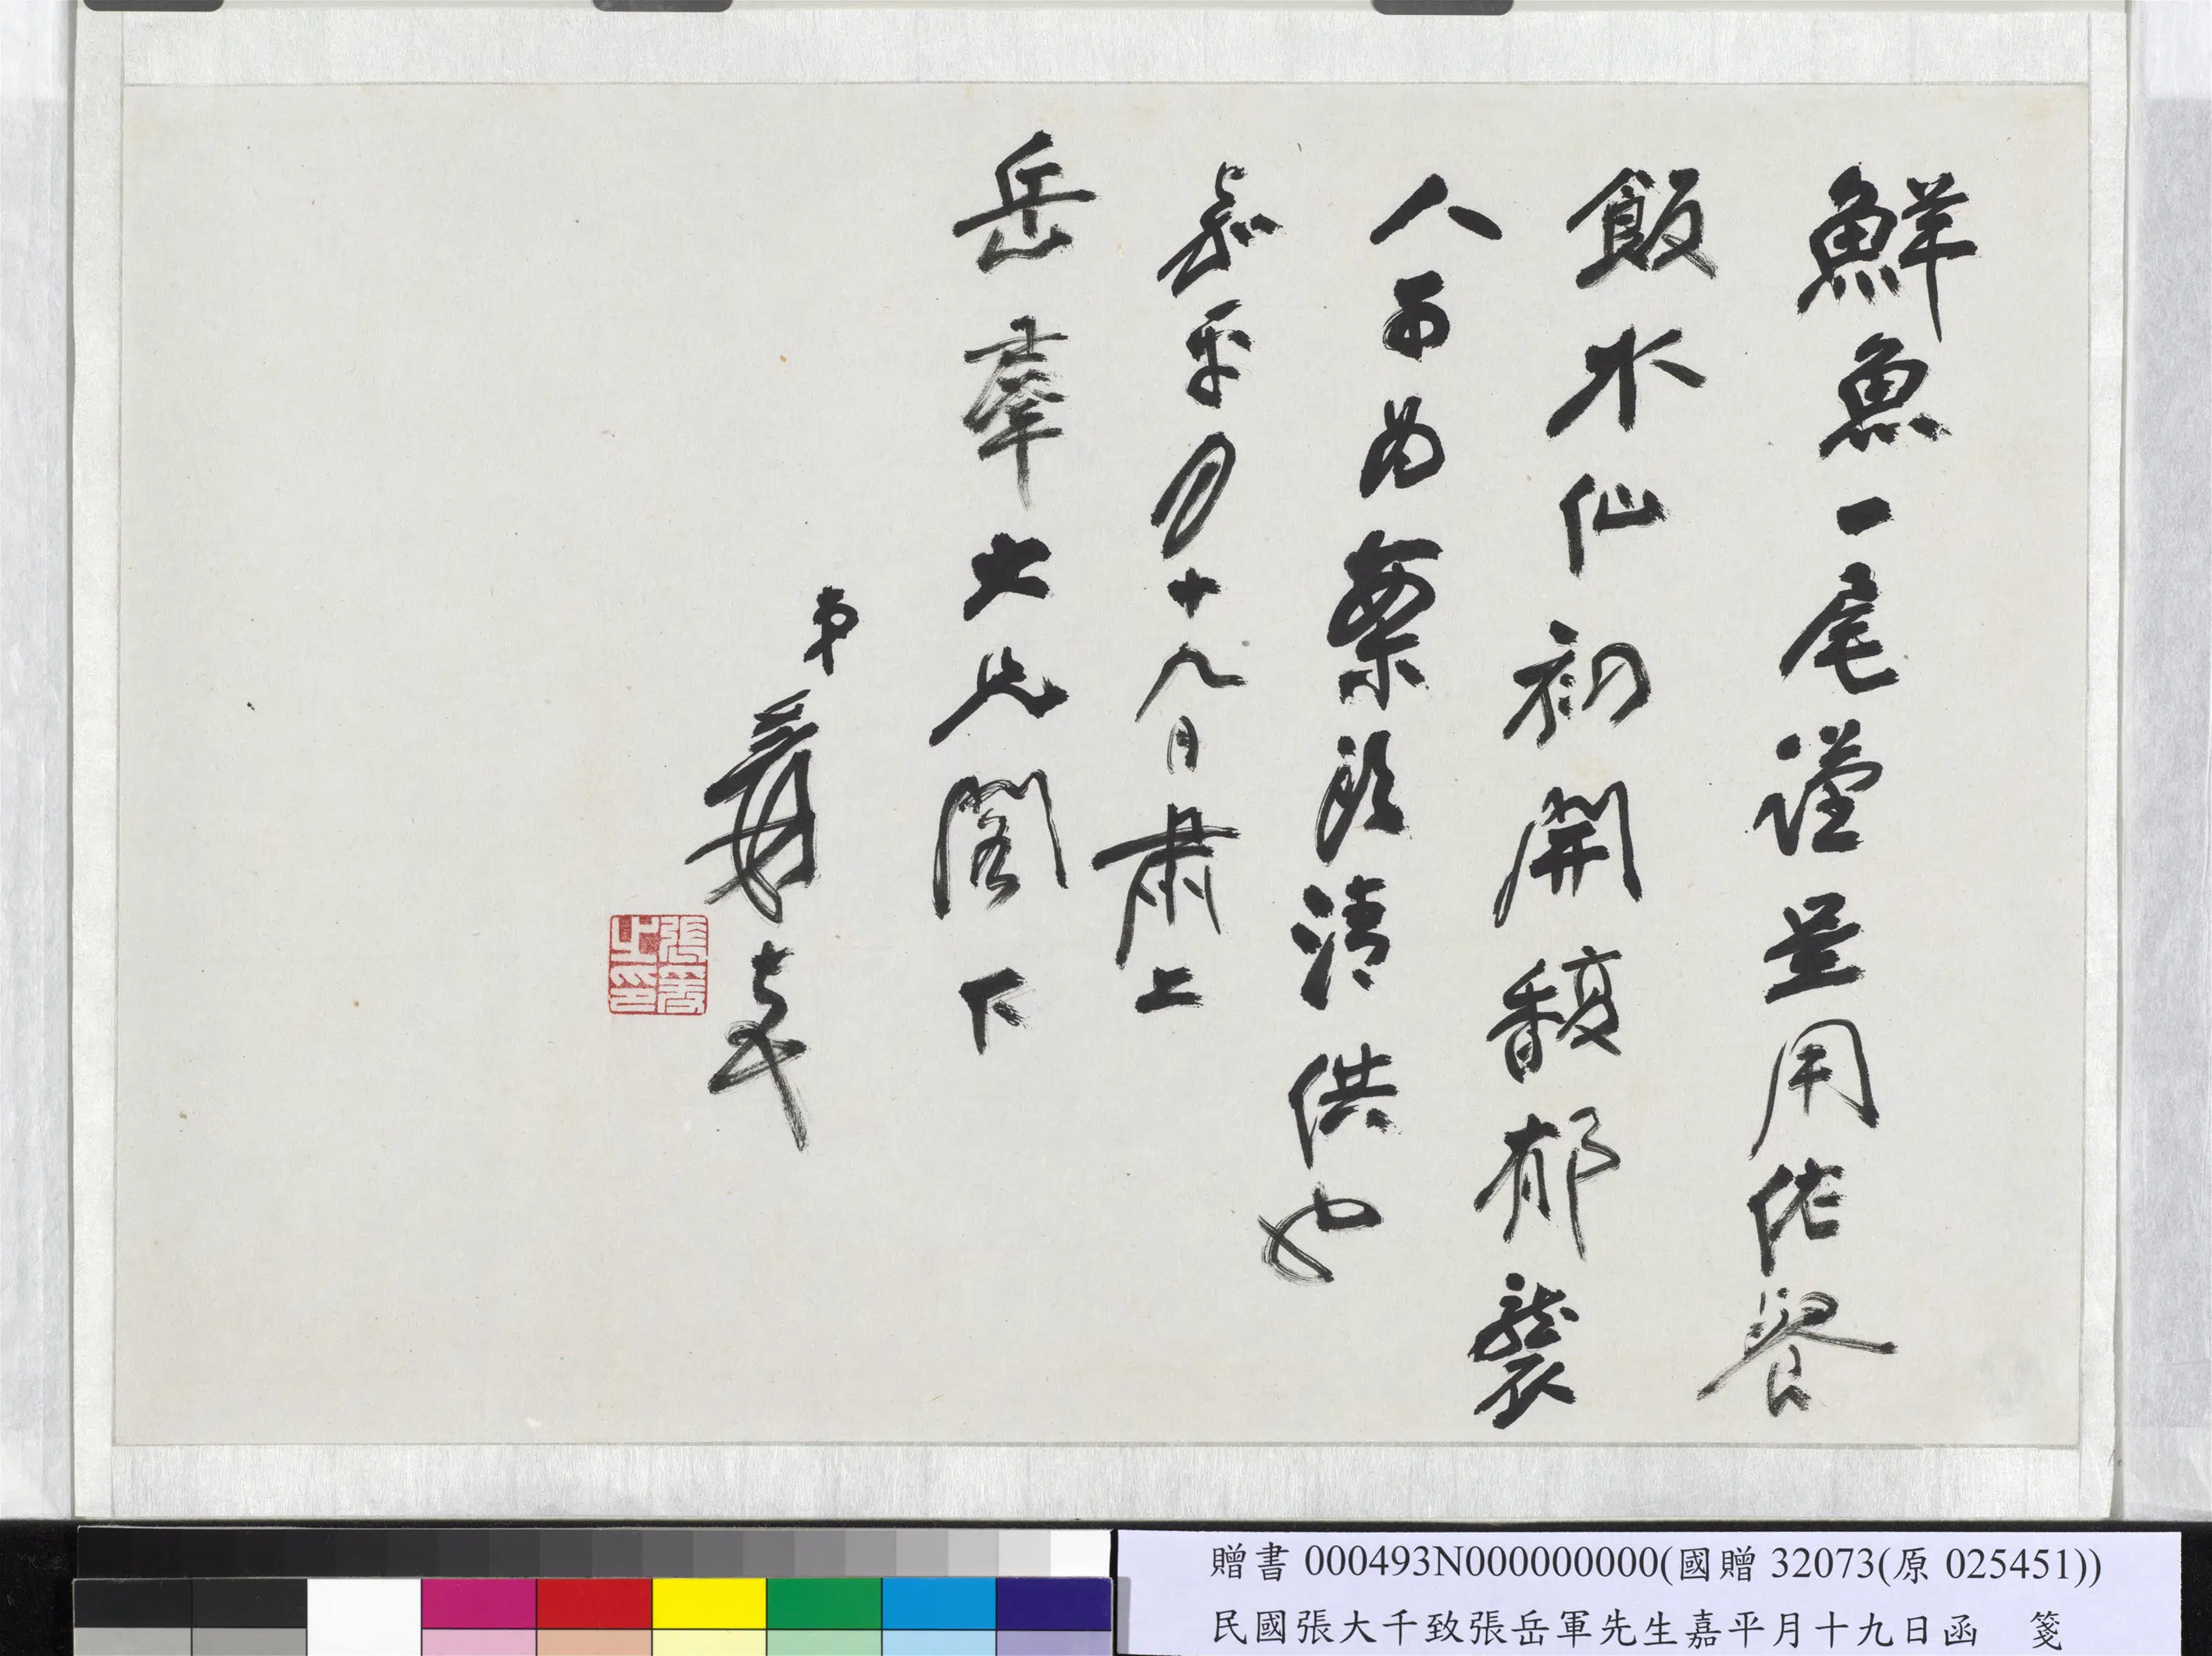 鮮魚一尾謹呈用佐餐
飯水仙初開馥郁襲
人可為案頭清供也
嘉平月十九日肅上
岳軍大兄閣下
弟爰
張爰之印
贈書000493N000000000(國贈32073(原 025451))
民國張大千致張岳軍先生嘉平月十九日函 箋